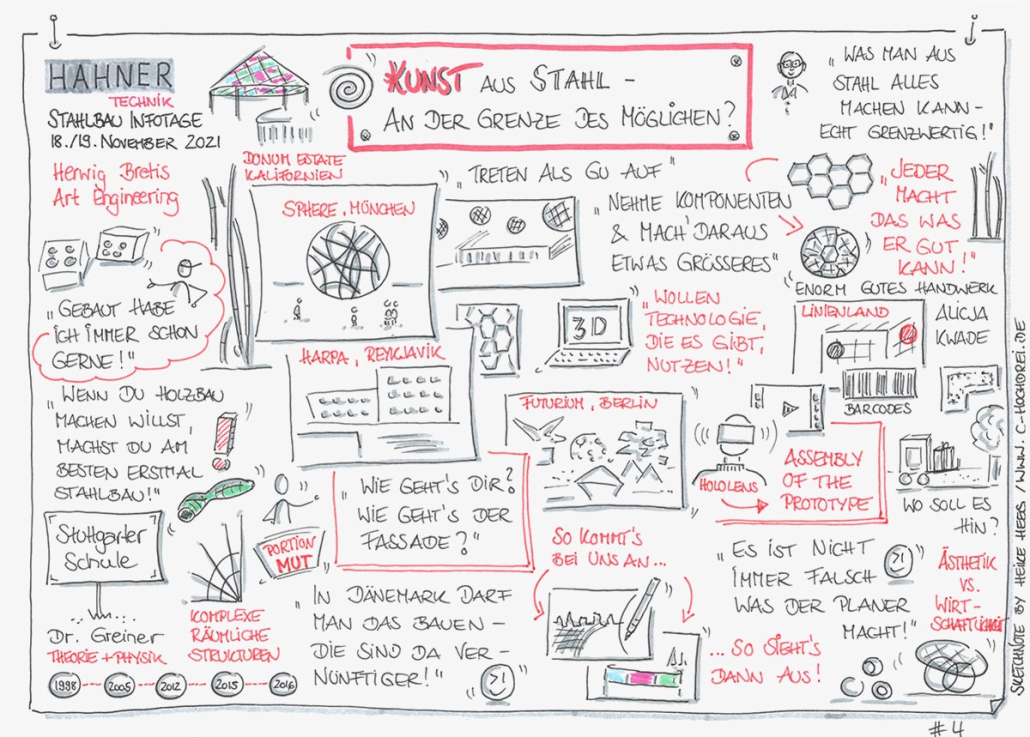 HAHNER
TECHNIK
STAHLBAU INFOTAGE
18./19. NOVEMBER 2021
Herwig Bretis
Art Engineering
KUNST AUS STAHL –
AN DER GRENZE DES MÖGLICHEN?
„WAS MAN AUS
STAHL ALLES
MACHEN KANN –
ECHT GRENZWERTIG!"
DONUM ESTATE
KALIFORNIEN
SPHERE, MÜNCHEN
„TRETEN ALS GU AUF"
„NEHME KOMPONENTEN
& MACH' DARAUS
ETWAS GRÖSSERES"
„JEDER
MACHT
DAS WAS
ER GUT
KANN!"
ENORM GUTES HANDWERK
„GEBAUT HABE
ICH IMMER SCHON
GERNE!"
HARPA, REYKJAVIK
3D
„WOLLEN
TECHNOLOGIE,
DIE ES GIBT,
NUTZEN!"
LINIENLAND
ALICJA
KWADE
BARCODES
„WENN DU HOLZBAU
MACHEN WILLST,
MACHST DU AM
BESTEN ERSTMAL
STAHLBAU!"
FUTURIUM, BERLIN
HOLOLENS
ASSEMBLY
OF THE
PROTOTYPE
WO SOLL ES
HIN?
„WIE GEHT'S DIR?
WIE GEHT'S DER
FASSADE?"
Stuttgarter
Schule
Dr. Greiner
THEORIE + PHYSIK
PORTION
MUT
KOMPLEXE
RÄUMLICHE
STRUKTUREN
1998
2005
2012
2015
2016
„IN DÄNEMARK DARF
MAN DAS BAUEN –
DIE SIND DA VER-
NÜNFTIGER!"
SO KOMMT'S
BEI UNS AN...
...SO SIEHT'S
DANN AUS!
„ES IST NICHT
IMMER FALSCH
WAS DER PLANER
MACHT!"
ÄSTHETIK
VS.
WIRT-
SCHAFTLICHKEIT
SKETCHNOTE BY HEIKE HEEG / WWW.C-HOCHDREI.DE
#4